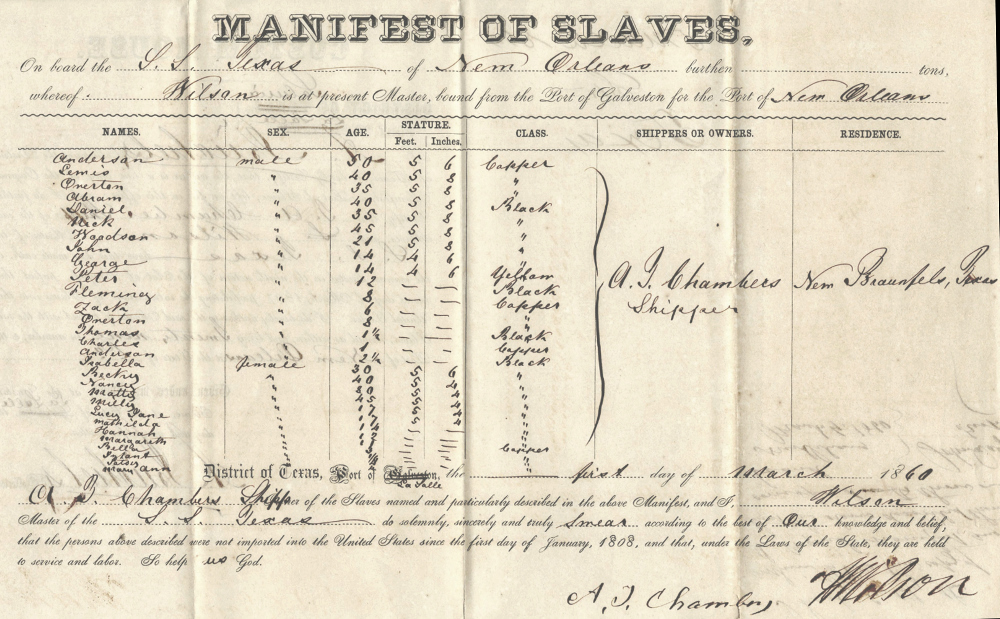 MANIFEST OF SLAVES,
On board the S. S. Texas of New Orleans burthen tons,
whereof Wilson is at present Master, bound from the Port of Galveston for the Port of New Orleans
NAMES. SEX. AGE. STATURE. CLASS. SHIPPERS OR OWNERS. RESIDENCE.
Feet. Inches.
Anderson male 50 5 6 Copper
Lewis " 40 5 8 "
Overton " 35 5 8 "
Abram " 40 5 8 "
Daniel " 35 5 8 Black
Nick " 45 5 8 "
Woodson " 21 5 8 "
John " 14 4 6 "
George " 14 4 6 "
Peter " 12 Yellow
Fleming " 8 Black
Zack " 6 Copper
Overton " 8 "
Thomas " 1½ Black
Charles " 1 Copper
Anderson " 2½ Black
Isabella female 30 5 6 "
Becky " 40 5
Nancy "
Matty "
Milly "
Lucy Jane "
Mathilda "
Hannah "
Margareth "
Bella " Copper
Infant "
Patsey
Mary Ann
A. J. Chambers New Braunfels, Texas
Shipper
District of Texas, Port of Galveston, the first day of March 1860
La Salle
A. J. Chambers Shipper of the Slaves named and particularly described in the above Manifest, and I, Wilson
Master of the S. S. Texas do solemnly, sincerely and truly Swear according to the best of Our knowledge and belief,
that the persons above described were not imported into the United States since the first day of January, 1808, and that, under the Laws of the State, they are held
to service and labor. So help us God.
A. J. Chambers Wilson